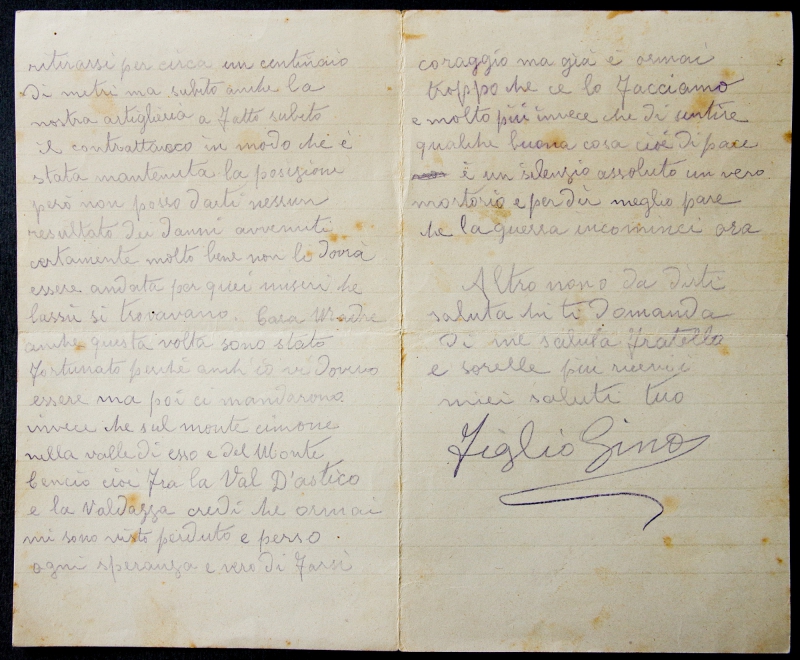 ritirarsi per circa un centinaio
di metri ma subito anche la
nostra artiglieria a fatto subito
il contrattacco in modo che è
stata mantenuta la posizione
però non posso darti nessun
resultato dei danni avvenuti
certamente molto bene non li dovrà
essere andata per quei miseri che
lassù si trovavano. Cara Madre
anche questa volta sono stato
fortunato perchè anch'io vi dovevo
essere ma poi ci mandarono
invece che sul monte cimone
nella valle di esso e del Monte
Cencio cioè fra la Val D'astico
e la Valdazza credi che ormai
mi sono visto perduto e perso
ogni speranza e vero di farsi
coraggio ma già è ormai
troppo che ce lo facciamo
e molto più invece che di sentire
qualche buona cosa cioè di pace
è un silenzio assoluto un vero
mortorio e per dir meglio pare
che la guerra incominci ora
Altro non o da dirti
saluta chi ti domanda
di me saluta fratello
e sorelle più ricevi
miei saluti tuo
figlio Gino